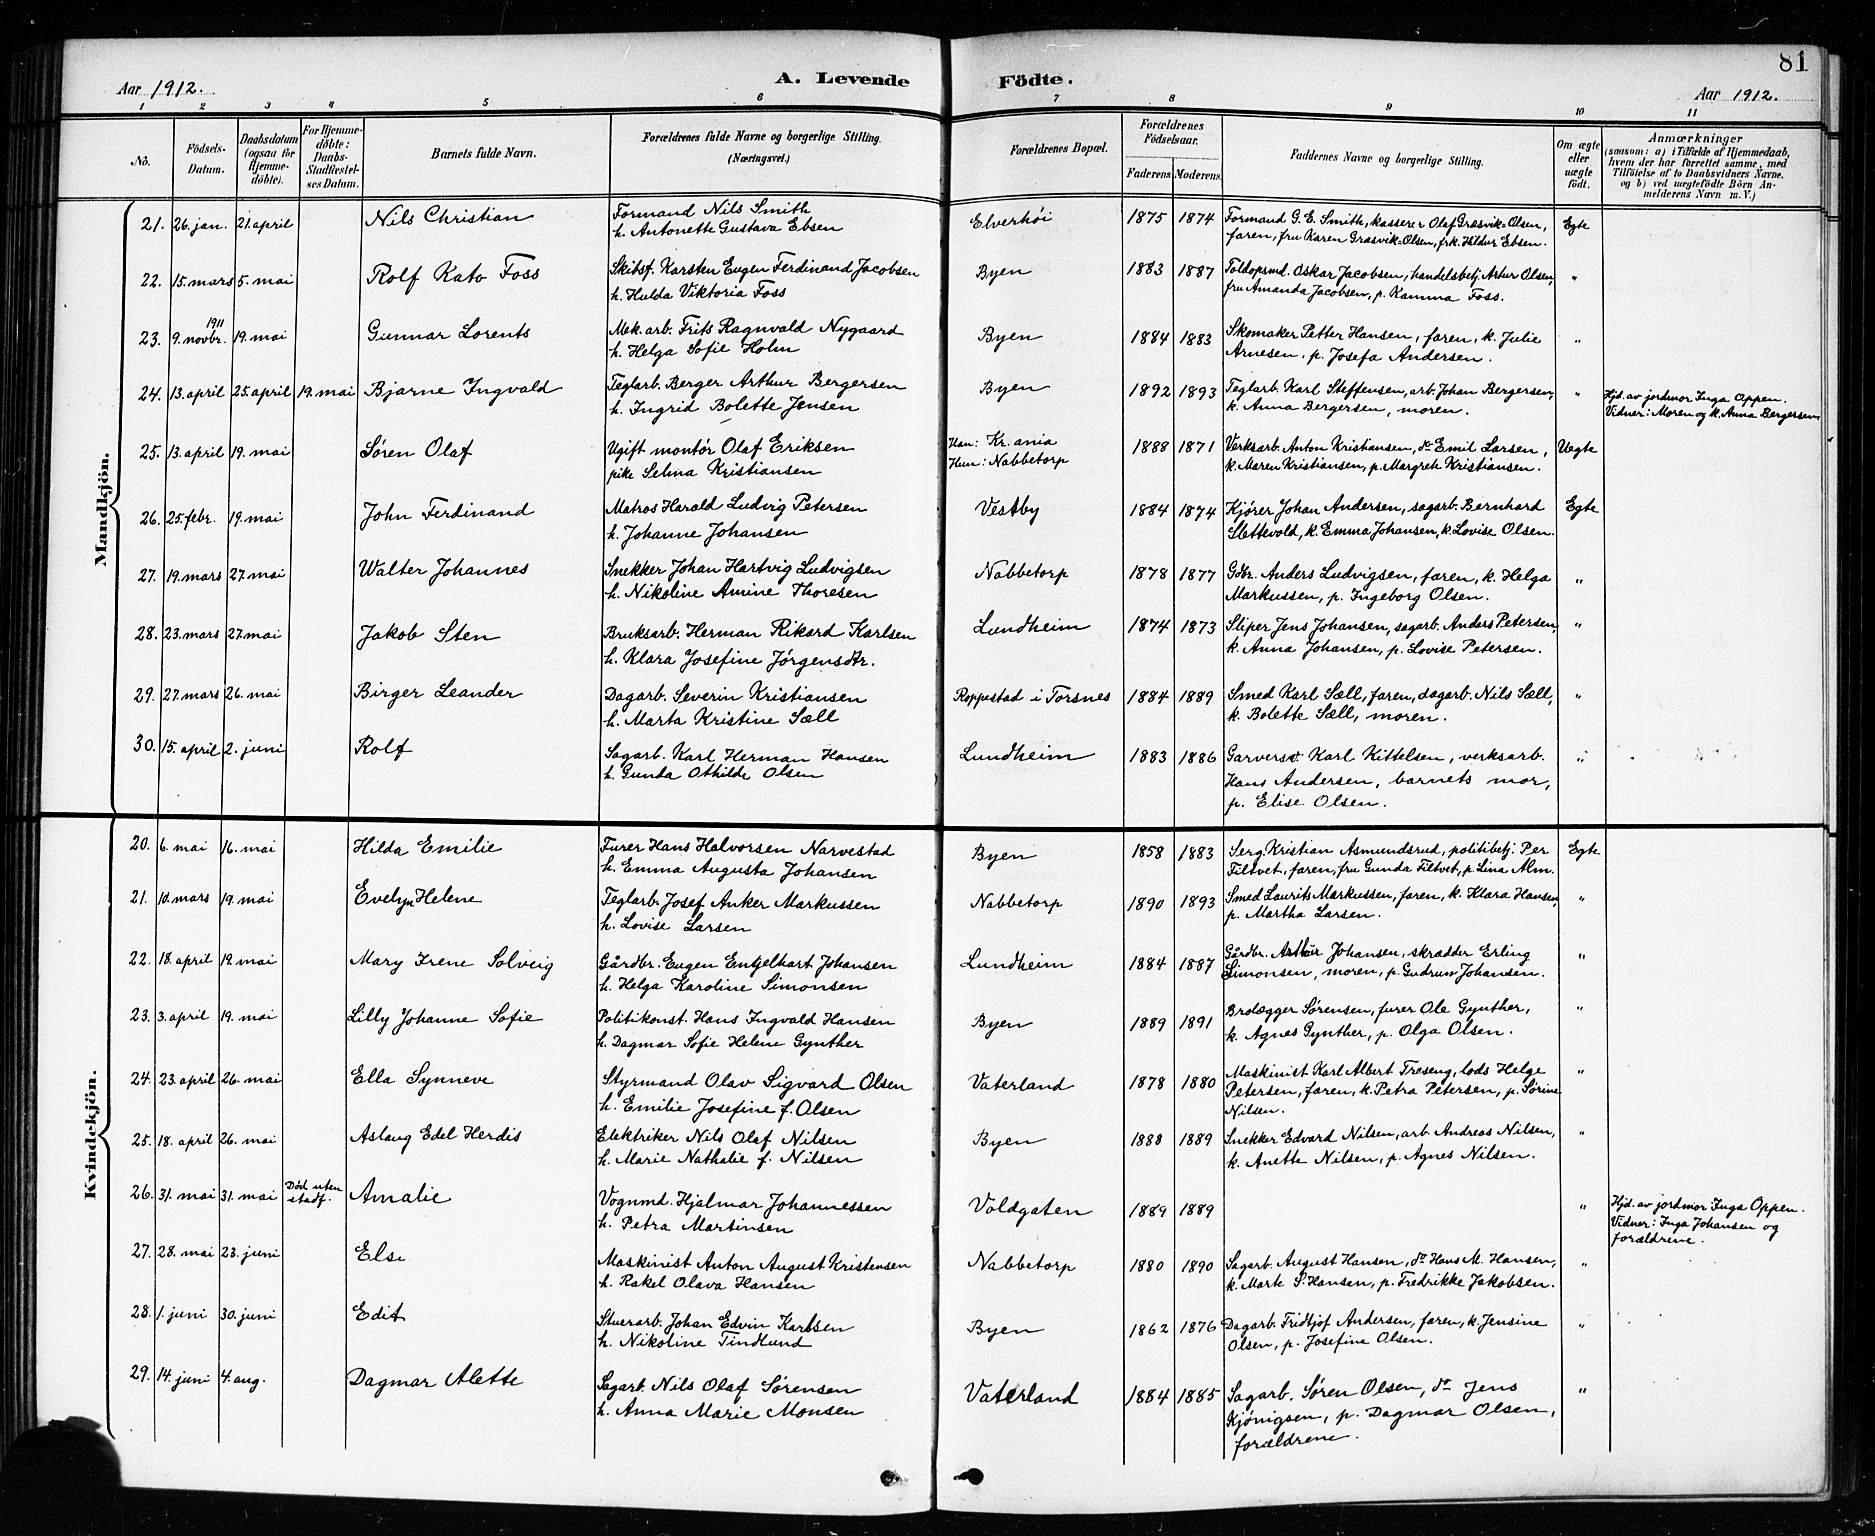 81
Aar 1912. A. Levende Födte. Aar 1912.
1 2 3 4 5 6 7 8 9 10 11
No. Födsels-Datum. Daabsdatum (ogsaa for Hjemme-döbte). For Hjemme-döbte: Daabs-Stadfæstel-ses Datum. Barnets fulde Navn. Forældrenes fulde Navne og borgerlige Stilling. (Næringsvei.) Forældrenes Bopæl. Forældrenes Födselsaar. Faderens Moderens. Faddernes Navne og borgerlige Stilling. Om ægte eller uægte födt. Anmærkninger (saasom: a) i Tilfælde af Hjemmedaab, hvem der har forrettet samme, med Tilföielse af to Daabsvidners Navne, og b) ved uægtefödte Börn An-melderens Navn m. V.)
Mandkjön.
21. 26. jan. 21. april Nils Christian Formand Nils Smith Elverhöi 1875 1874 Formand G. E. Smith, kasserer Olaf Græsvik-Olsen, Egte
h. Antonette Gustava Ebsen faren, fru Karen Græsvik-Olsen, frk. Hildur Ebsen.
22. 15. mars 5. mai Rolf Kato Foss Skibsf. Karsten Eugen Ferdinand Jacobsen Byen 1883 1887 Toldopsmd. Oskar Jacobsen, handelsbetj. Artur Olsen, "
h. Hulda Viktoria Foss fru Amanda Jacobsen, p. Kamma Foss.
1911
23. 9. novbr. 19. mai Gunnar Lorents Mek. arb. Frits Ragnvald Nygaard Byen 1884 1883 Skomaker Petter Hansen, faren, k. Julie "
h. Helga Sofie Holm Arnesen, p. Josefa Andersen.
24. 13. april 25. april 19. mai Bjarne Ingvald Teglarb. Berger Arthur Bergersen Byen 1892 1893 Teglarb. Karl Steffensen, arb. Johan Bergersen, " Hjd. av jordmor Inga Oppen.
h. Ingrid Bolette Jensen k. Anna Bergersen, moren. Vidner: Moren og k. Anna Bergersen
25. 13. april 19. mai Søren Olaf Ugift montör Olaf Eriksen Han: Kr.ania 1888 1871 Verksarb. Anton Kristiansen, do Emil Larsen, Uegte
pike Selma Kristiansen Hun: Nabbetorp k. Maren Kristiansen, p. Margrete Kristiansen.
26. 25. febr. 19. mai John Ferdinand Matros Harald Ludvig Petersen Vestby 1884 1874 Kjörer Johan Andersen, sagarb. Bernhard Egte
h. Johanne Johansen Slettevold, k. Emma Johansen, k. Lovise Olsen.
27. 19. mars 27. mai Walter Johannes Snekker Johan Hartvig Ludvigsen Nabbetorp 1878 1877 Gdbr. Anders Ludvigsen, faren, k. Helga "
h. Nikoline Amine Thoresen Markussen, p. Ingeborg Olsen.
28. 23. mars 27. mai Jakob Sten Bruksarb. Herman Rikard Karlsen Lundheim 1874 1873 Sliper Jens Johansen, sagarb. Anders Petersen, "
h. Klara Josefine Jørgensdtr. k. Anna Johansen, p. Lovise Petersen.
29. 27. mars 26. mai Birger Leander Dagarb. Severin Kristiansen Roppestad i Torsnes 1884 1889 Smed Karl Sæll, faren, dagarb. Nils Sæll, "
h. Marta Kristine Sæll k. Bolette Sæll, moren.
30. 15. april 2. juni Rolf Sagarb. Karl Herman Hansen Lundheim 1883 1886 Garversv. Karl Kittelsen, verksarb. "
h. Gunda Othilde Olsen Hans Andersen, barnets mor,
p. Elise Olsen.
Kvindekjön.
20. 6. mai 16. mai Hilda Emilie Furer Hans Halvorsen Narvestad Byen 1858 1883 Serg. Kristian Asmundsrud, politibetj. Per Egte
h. Emma Augusta Johansen Filtvet, faren, fru Gunda Filtvet, p Lina Alm.
21. 10. mars 19. mai Evelyn Helene Teglarb. Josef Anker Markussen Nabbetorp 1890 1893 Smed Laurits Markussen, faren, k. Klara Hansen, "
h. Lovise Larsen p. Martha Larsen.
22. 18. april 19. mai Mary Irene Solveig Gårdbr. Eugen Engelhart Johansen Lundheim 1884 1887 Gårdbr. Arthur Johansen, skrædder Erling "
h. Helga Karoline Simonsen Simonsen, moren, p. Gudrun Johansen.
23. 3. april 19. mai Lilly Johanne Sofie Politikonst. Hans Ingvald Hansen Byen 1889 1891 Brolægger Sørensen, furer Ole Gynther, "
h. Dagmar Sofie Helene Gynther k. Agnes Gynther, p. Olga Olsen.
24. 23. april 26. mai Ella Synneve Styrmand Olav Sigvard Olsen Vaterland 1878 1880 Maskinist Karl Albert Treseng, lods Helge "
h. Emilie Josefine f. Olsen Petersen, faren, k. Petra Petersen, p. Sørine
Nilsen.
25. 18. april 26. mai Aslaug Edel Herdis Elektriker Nils Olaf Nilsen Byen 1888 1889 Snekker Edvard Nilsen, arb. Andreas Nilsen, "
h. Marie Nathalie f. Nilsen k. Anette Nilsen, p. Agnes Nilsen.
26. 31. mai 31. mai Död uten stadf. Amalie Vognmd. Hjalmar Johannessen Voldgaten 1889 1889 " Hjd. av jordmor Inga Oppen.
h. Petra Martinsen Vidner: Inga Johansen og
forældrene.
27. 28. mai 23. juni Else Maskinist Anton August Kristensen Nabbetorp 1880 1890 Sagarb. August Hansen, do Hans M. Hansen, "
h. Rakel Olava Hansen k. Marte S. Hansen, p. Fredrikke Jakobsen.
28. 1. juni 30. juni Edit Stuerarb. Johan Edvin Karlsen Byen 1862 1876 Dagarb. Fridtjof Andersen, faren, k. Jensine "
h. Nikoline Tindlund Olsen, p. Josefine Olsen.
29. 14. juni 4. aug. Dagmar Alette Sagarb. Nils Olaf Sørensen Vaterland 1884 1885 Sagarb. Søren Olsen, do Jens "
h. Anna Marie Monsen Kjönigsen, p. Dagmar Olsen,
forældrene.